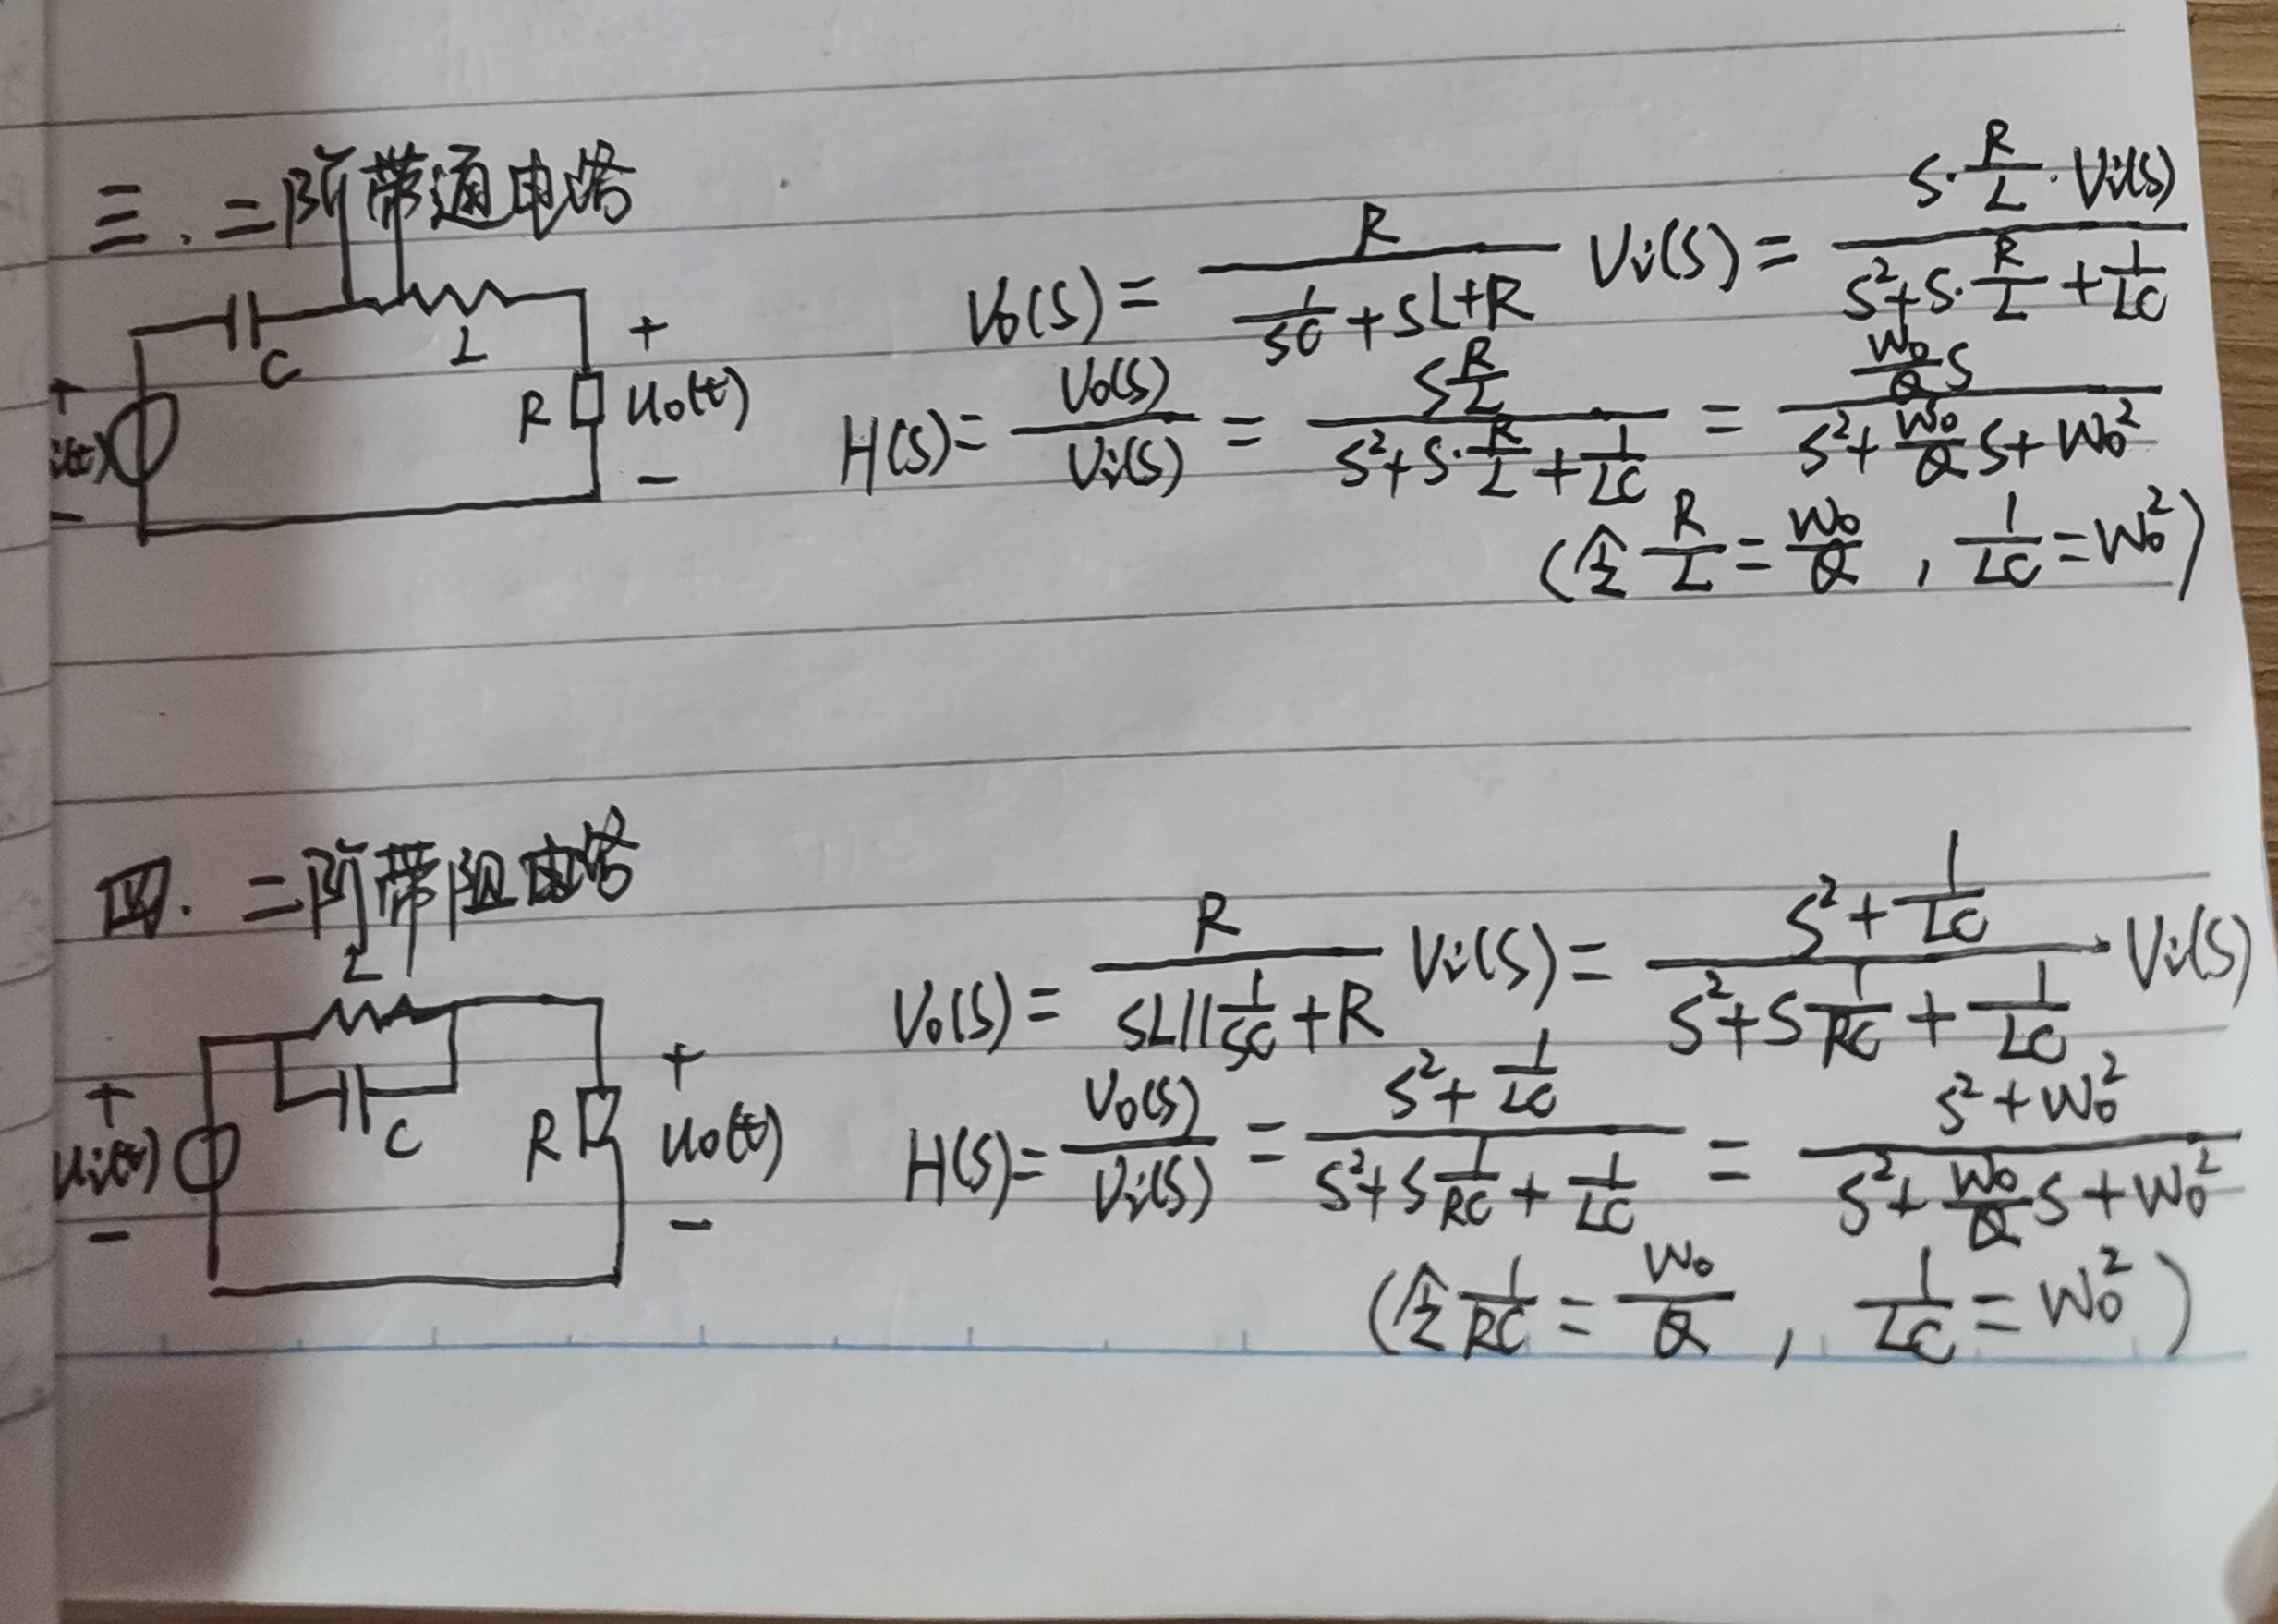 三.二阶带通电路
V₀(S) = R / (1/SC + SL + R) Vi(S) = S·R/L·Vi(S) / (S²+S·R/L+1/LC)
C
L
+
R
u₀(t)
-
+
i(t)
-
H(S) = V₀(S)/Vi(S) = S R/L / (S²+S·R/L+1/LC) = (W₀/Q)S / (S²+(W₀/Q)S+W₀²)
(令 R/L = W₀/Q , 1/LC = W₀²)
四.二阶带阻电路
L
C
+
ui(t)
-
R
+
u₀(t)
-
V₀(S) = R / (SL∥1/SC + R) Vi(S) = (S²+1/LC) / (S²+S 1/RC+1/LC) · Vi(S)
H(S) = V₀(S)/Vi(S) = (S²+1/LC) / (S²+S 1/RC+1/LC) = (S²+W₀²) / (S²+(W₀/Q)S+W₀²)
(令 1/RC = W₀/Q , 1/LC = W₀²)